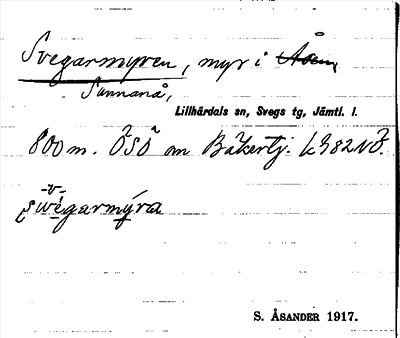 Svegarmyren, myr i Åen,
Sunnanå,
Lillhärdals sn, Svegs tg, Jämtl. l.
800 m. ÖSÖ om Bäkertj. k 982 NÖ.
-v-
swégarmýra
S. ÅSANDER 1917.